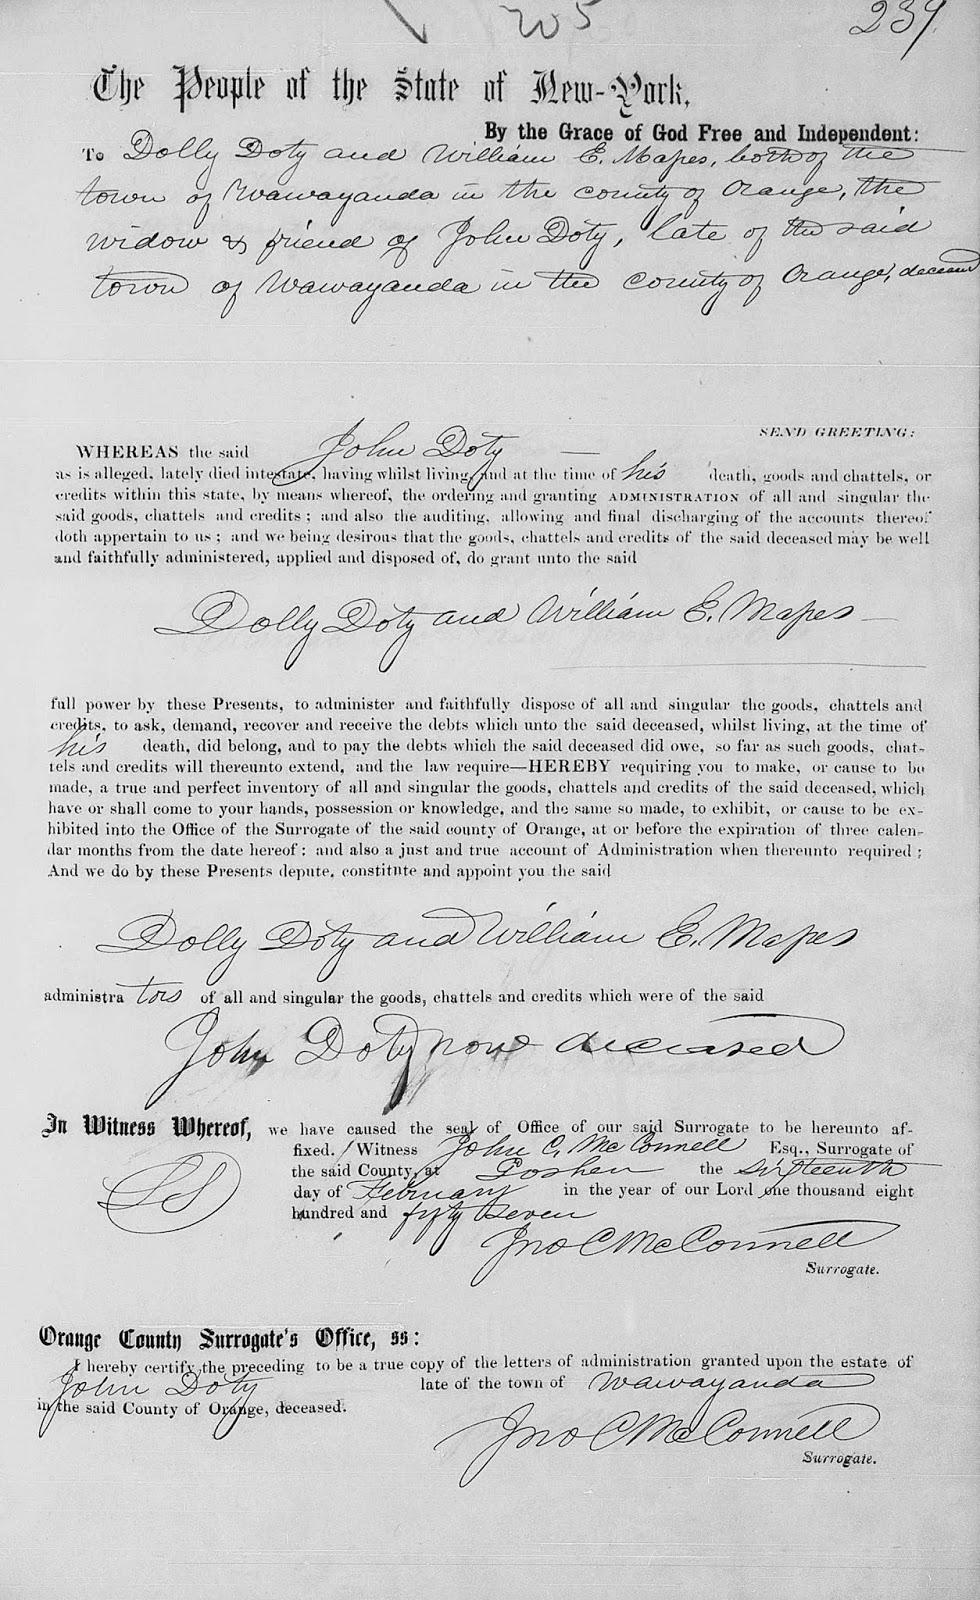 205
239
The People of the State of New-York,
By the Grace of God Free and Independent:
To Dolly Doty and William E. Mapes, both of the
town of Wawayanda in the county of Orange, the
widow & friend of John Doty, late of the said
town of Wawayanda in the county of Orange, deceased
SEND GREETING:
WHEREAS the said John Doty —
as is alleged, lately died intestate, having whilst living, and at the time of his death, goods and chattels, or
credits within this state, by means whereof, the ordering and granting ADMINISTRATION of all and singular the
said goods, chattels and credits; and also the auditing, allowing and final discharging of the accounts thereof
doth appertain to us; and we being desirous that the goods, chattels and credits of the said deceased may be well
and faithfully administered, applied and disposed of, do grant unto the said
Dolly Doty and William E. Mapes —
full power by these Presents, to administer and faithfully dispose of all and singular the goods, chattels and
credits, to ask, demand, recover and receive the debts which unto the said deceased, whilst living, at the time of
his death, did belong, and to pay the debts which the said deceased did owe, so far as such goods, chat-
tels and credits will thereunto extend, and the law require—HEREBY requiring you to make, or cause to be
made, a true and perfect inventory of all and singular the goods, chattels and credits of the said deceased, which
have or shall come to your hands, possession or knowledge, and the same so made, to exhibit, or cause to be ex-
hibited into the Office of the Surrogate of the said county of Orange, at or before the expiration of three calen-
dar months from the date hereof: and also a just and true account of Administration when thereunto required;
And we do by these Presents depute, constitute and appoint you the said
Dolly Doty and William E. Mapes
administrators of all and singular the goods, chattels and credits which were of the said
John Doty now deceased
In Witness Whereof, we have caused the seal of Office of our said Surrogate to be hereunto af-
fixed. Witness John C. McConnell Esq., Surrogate of
the said County, at Goshen the sixteenth
day of February in the year of our Lord one thousand eight
hundred and fifty seven
LS
Jno C McConnell
Surrogate.
Orange County Surrogate's Office, ss:
I hereby certify the preceding to be a true copy of the letters of administration granted upon the estate of
John Doty late of the town of Wawayanda
in the said County of Orange, deceased.
Jno C McConnell
Surrogate.